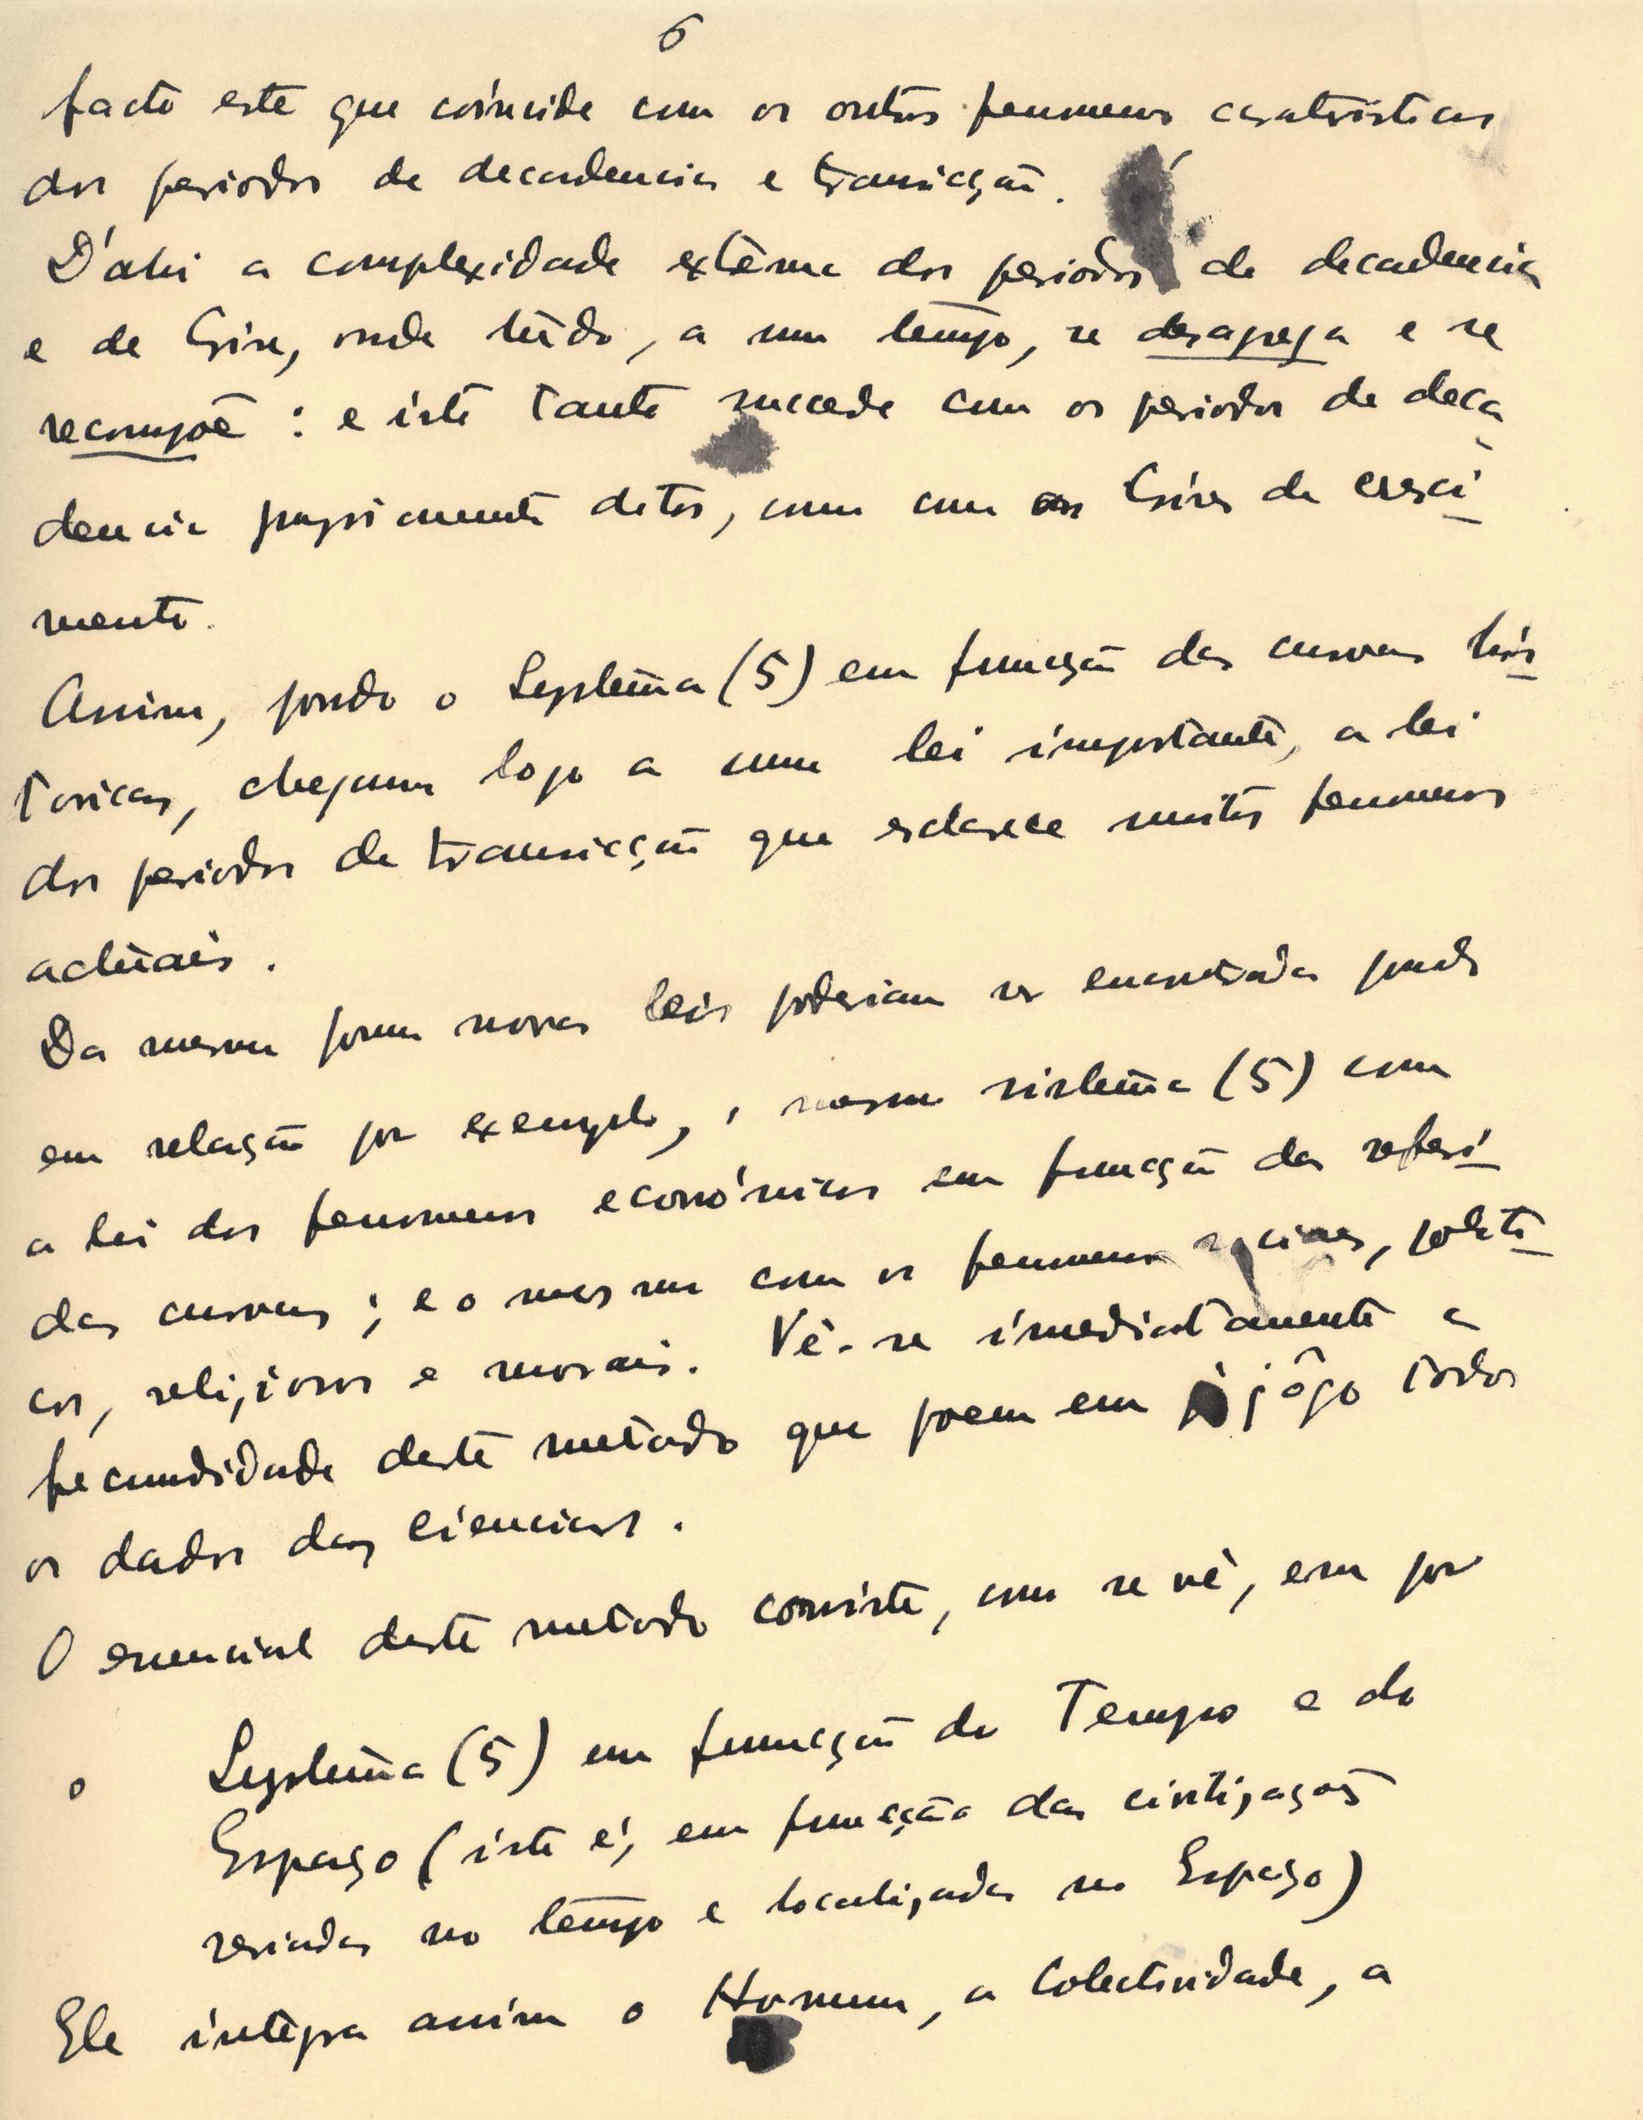 6
facto este que coincide com os outros fenomenos caratristicos
dos periodos de decadencia e transicção.
D'ahi a complexidade extêma dos periodos de decadencia
e de Crise, onde tudo, a um tempo, se desagrega e se
recompõe : e isto tanto succede com os periodos de deca
dencia propriamente ditos, como com as Crises de cresci
mento.
Assim, pondo o Systema (5) em funcção das curvas his
toricas, chegamos logo a uma lei importante, a lei
dos periodos de transicção que esclarece muitos fenomenos
actuais.
Da mesma forma novas leis poderiam ser encontradas pondo
em relação por exemplo, o mesmo sistema (5) com
a lei dos fenomenos económicos em funcção das referi
das curvas ; e o mesmo com os fenomenos sociaes, politi
cos, religiosos e morais. Vê-se imediatamente a
fecundidade deste metodo que poem em jôgo todos
os dados das ciencias.
O essencial deste metodo consiste, como se vê, em por
o Systema (5) em funcção do Tempo e do
Espaço (isto é, em funcção das civilizações
seriadas no tempo e localizadas no Espaço)
Ele integra assim o Homem, a Colectividade, a